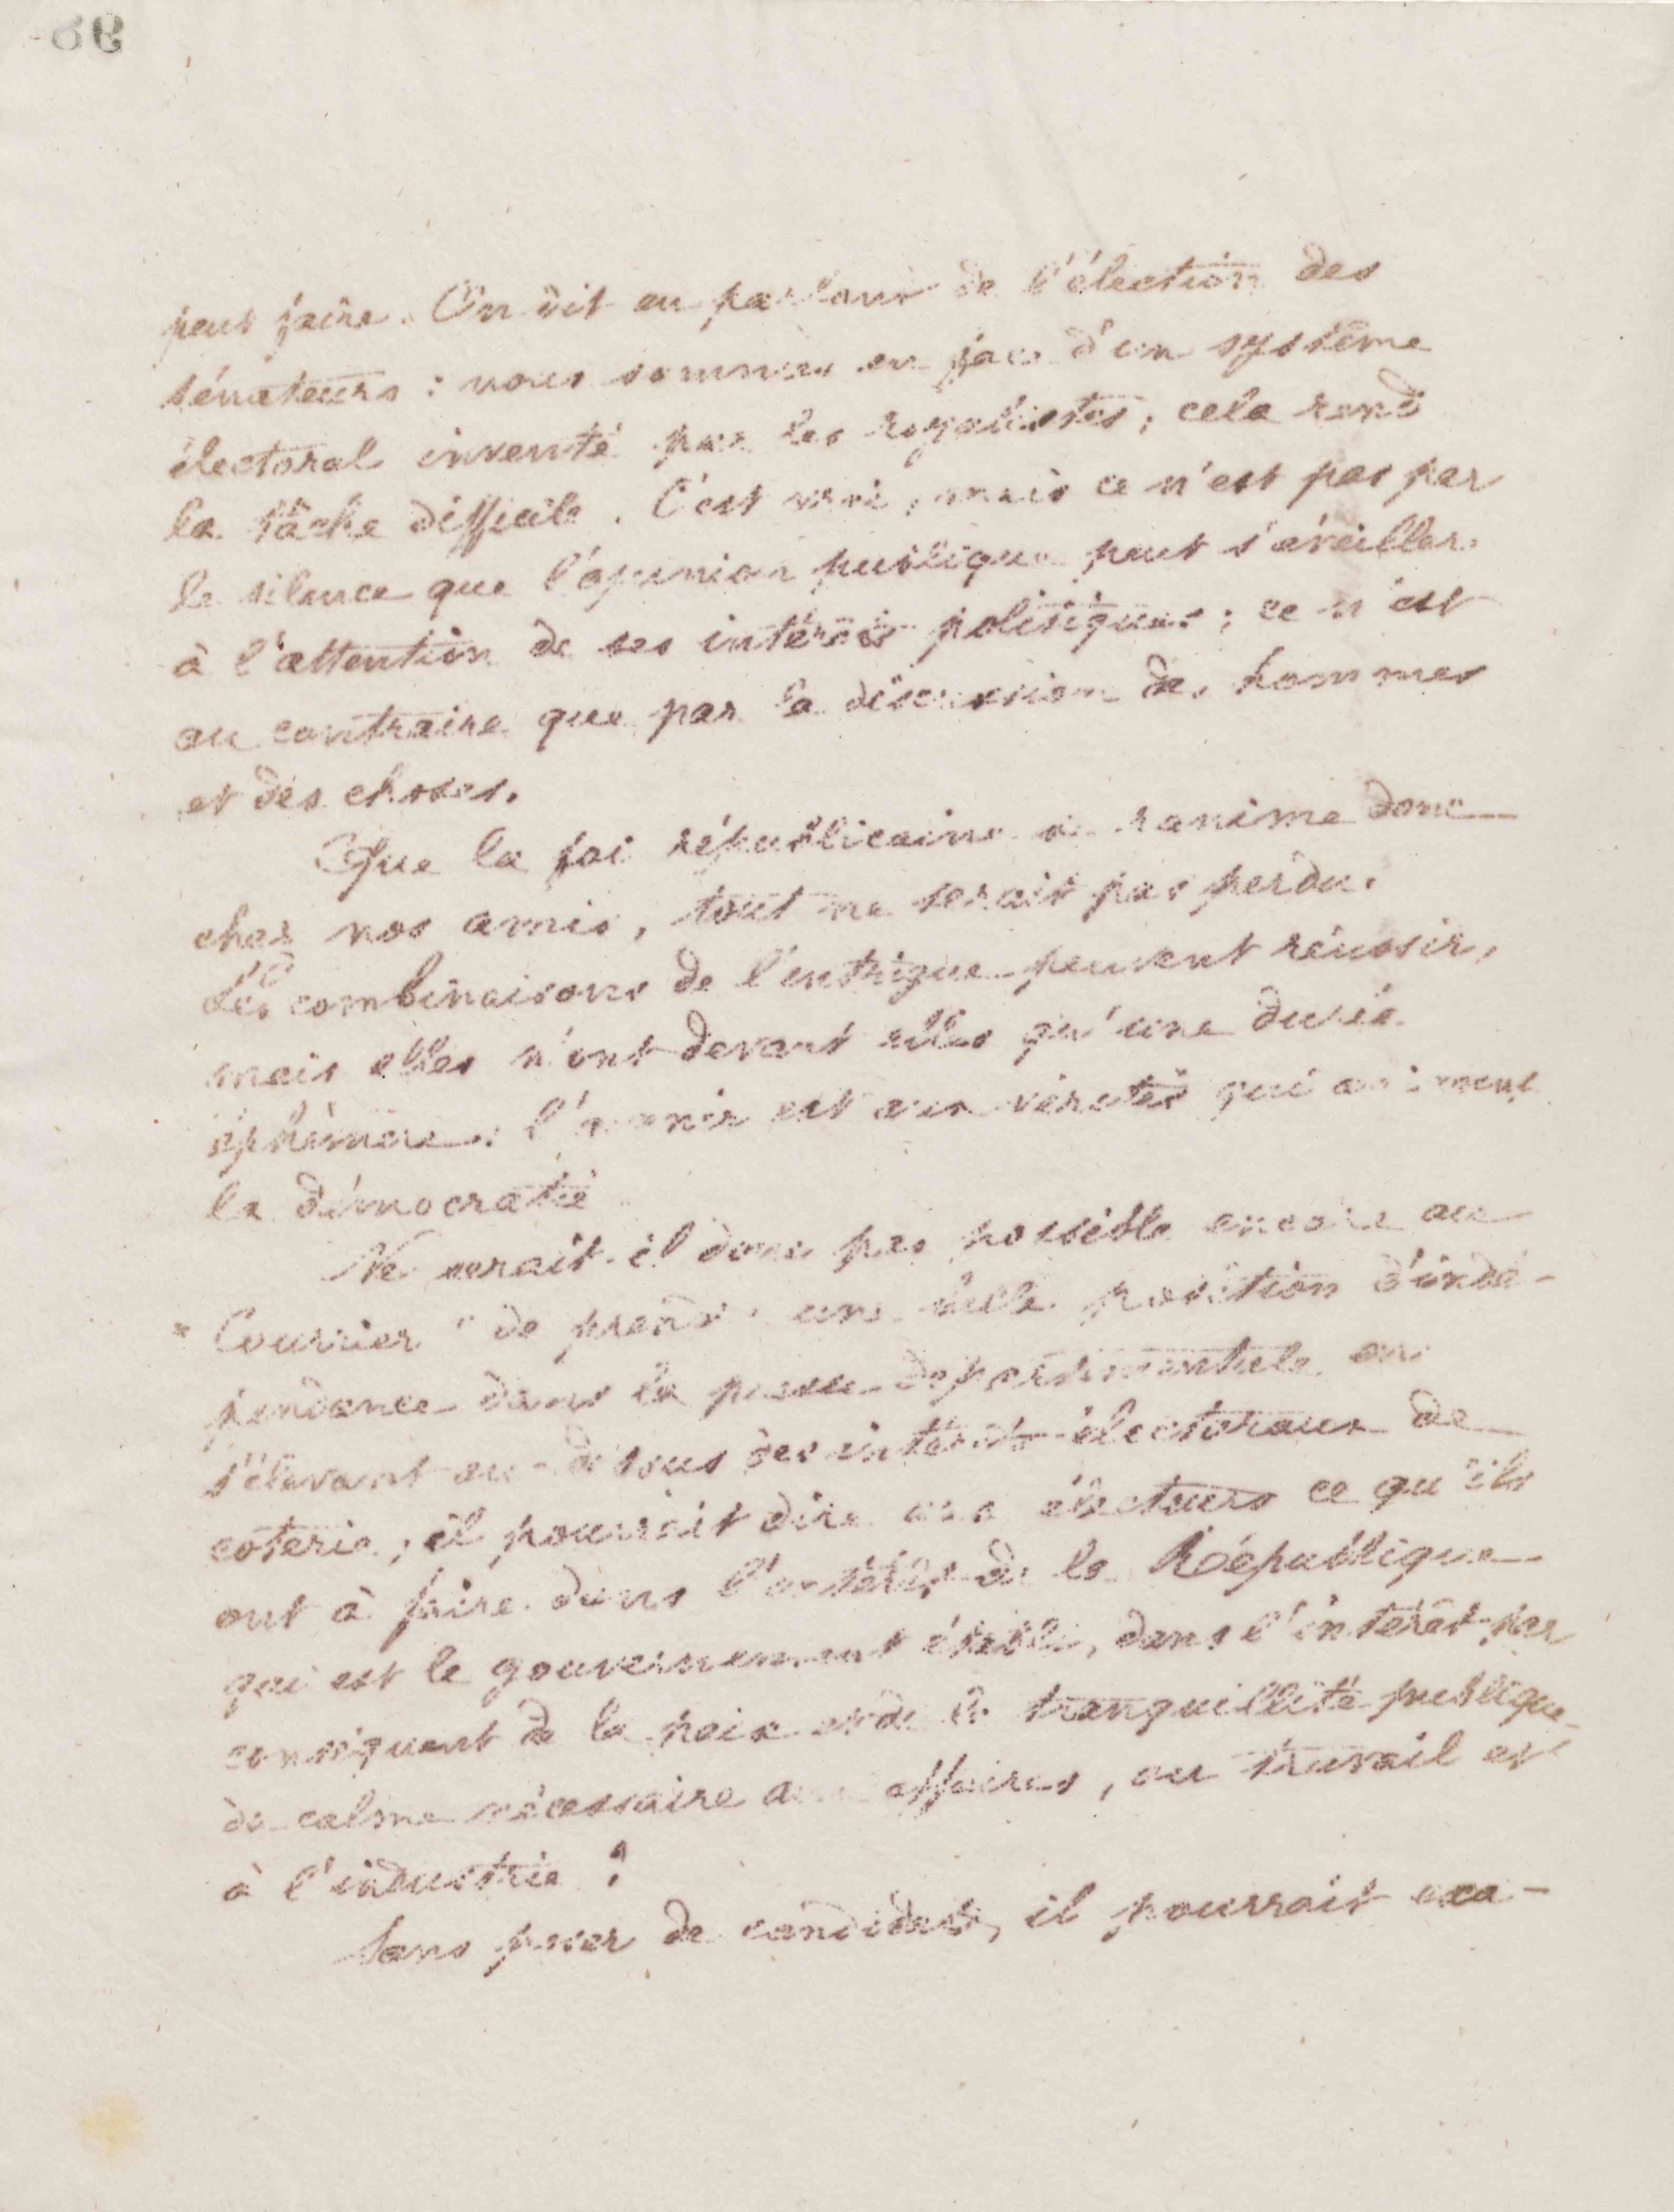 peut faire. On dit en parlant de l'élection des
sénateurs : nous sommes en face d'un système
électoral inventé par les royalistes ; cela rend
la tâche difficile. C'est vrai, mais ce n'est pas par
le silence que l'opinion publique peut s'éveiller
à l'attention de ses intérêts politiques ; ce n'est
au contraire que par la discussion des hommes
et des choses.
Que la foi républicaine se ranime donc
chez nos amis, tout ne serait pas perdu.
Les combinaisons de l'intrigue peuvent réussir,
mais elles n'ont devant elles qu'une durée
éphémère : l'avenir est aux vérités qui animent
la démocratie
Ne serait-il donc pas possible encore au
"Courrier" de prendre une belle position d'indé-
pendance dans la presse départementale en
s'élevant au-dessus des intérêts électoraux de
coterie ; il pourrait dire aux électeurs ce qu'ils
ont à faire dans l'intérêt de la République
qui est le gouvernement établi, dans l'intérêt par
conséquent de la paix et de la tranquillité publique
du calme nécessaire aux affaires, au travail et
à l'industrie ?
Sans poser de candidats, il pourrait exa-